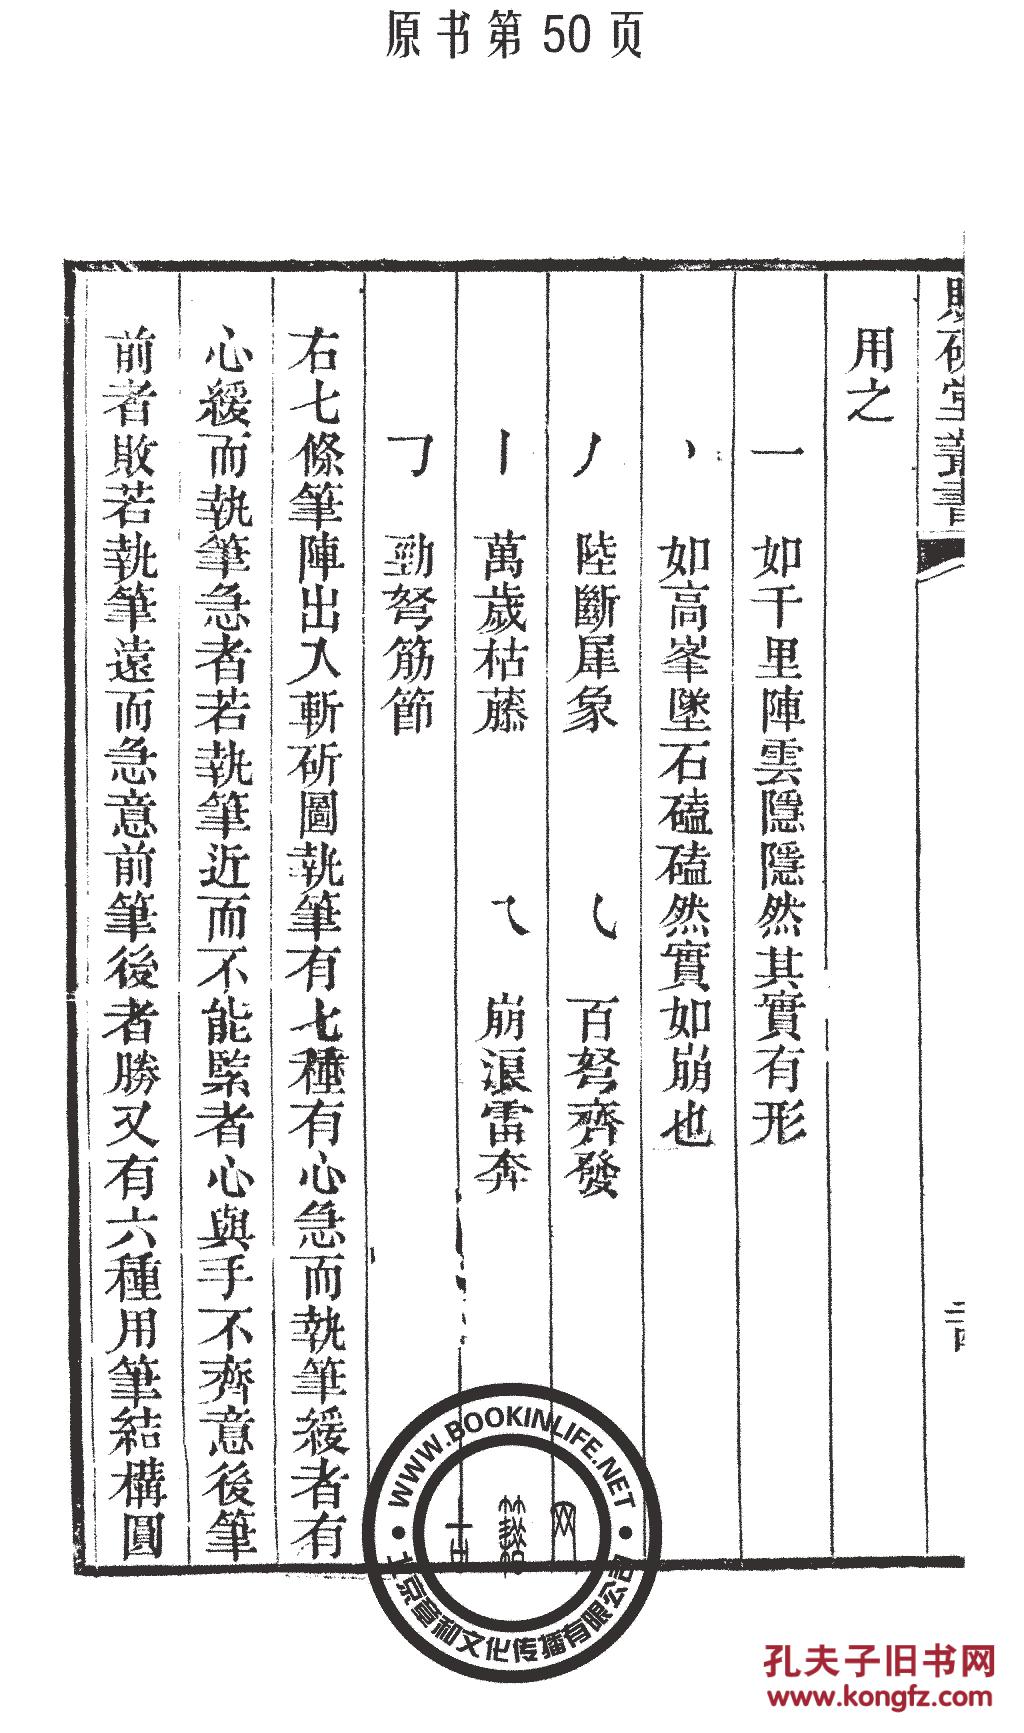 原书第 50 页
硯堂叢書
用之
一 如千里陣雲隱隱然其實有形
丶 如高峯墜石磕磕然實如崩也
丿 陸斷犀象 乀 百弩齊發
丨 萬歲枯藤 ㇂ 崩浪雷奔
𠃌 勁弩筋節
右七條筆陣出入斬斫圖執筆有七種有心急而執筆緩者有
心緩而執筆急者若執筆近而不能緊者心與手不齊意後筆
前者敗若執筆遠而急意前筆後者勝又有六種用筆結構圓
WWW.BOOKINLIFE.NET
北京章和文化传播有限公司
孔夫子旧书网
www.kongfz.com